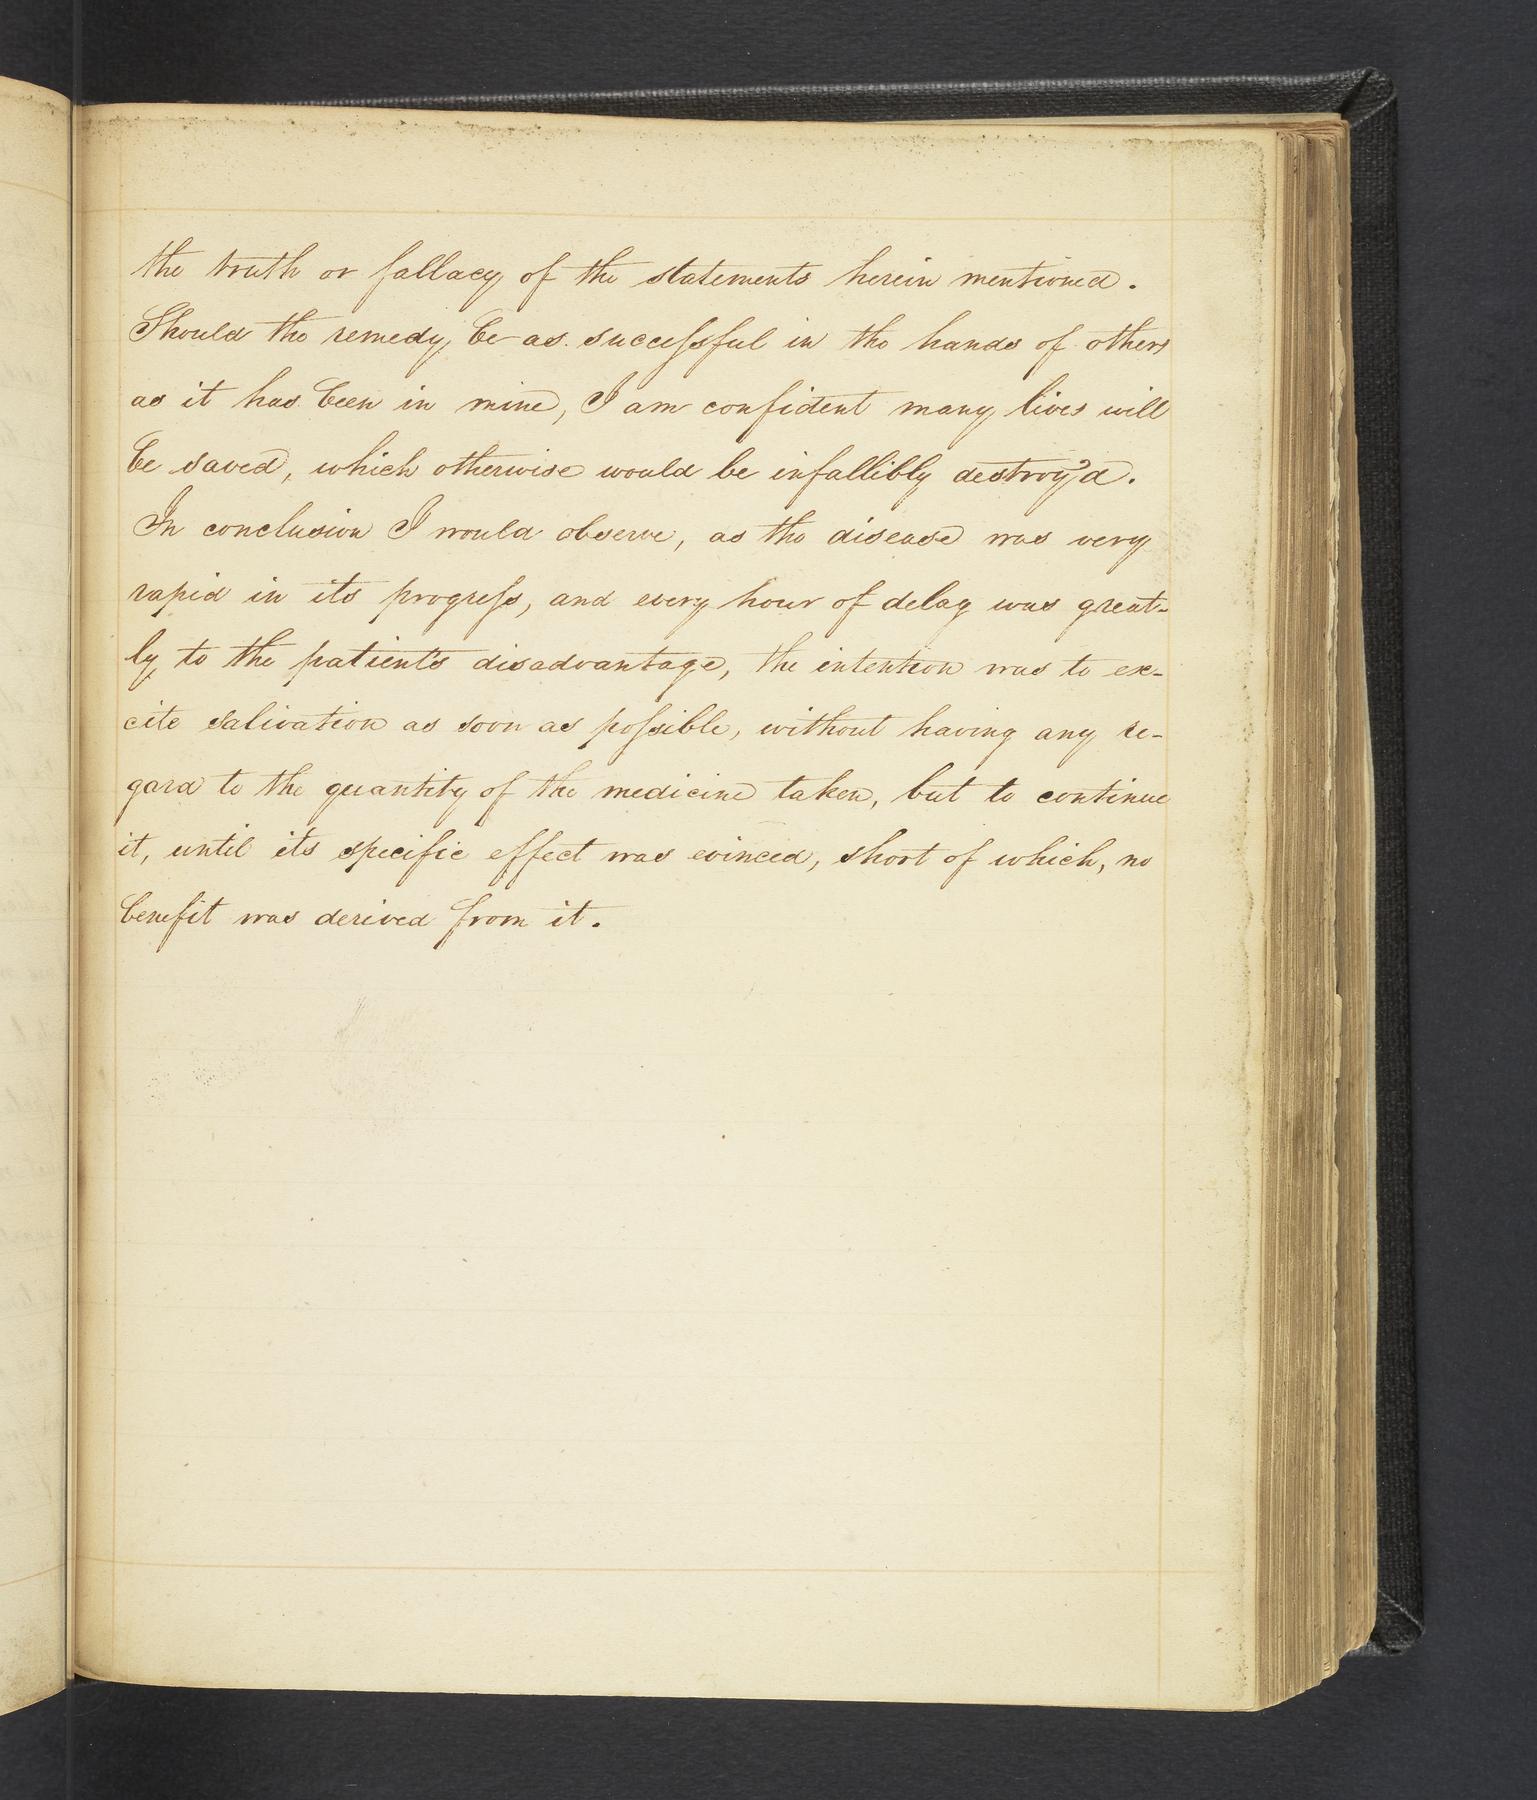 the truth or fallacy of the statements herein mentioned.
Should the remedy be as successful in the hands of others
as it has been in mine, I am confident many lives will
be saved, which otherwise would be infallibly destroy'd.
In conclusion I would observe, as the disease was very
rapid in its progress, and every hour of delay was great-
ly to the patient's disadvantage, the intention was to ex-
cite salivation as soon as possible, without having any re-
gard to the quantity of the medicine taken, but to continue
it, until its specific effect was evinced, short of which, no
benefit was derived from it.